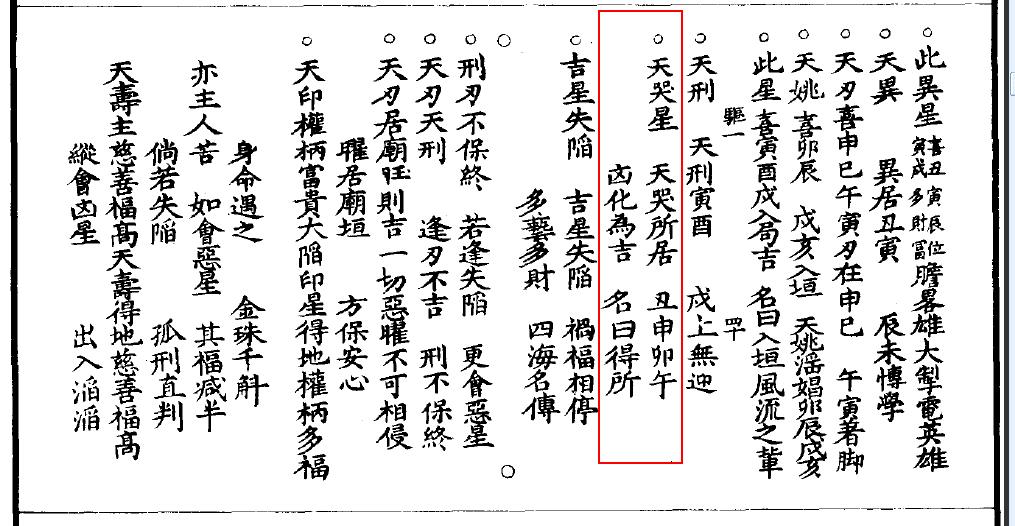 ○此異星 喜丑寅辰位 寅戌多財富 膽畧雄大掣電英雄
○天異 異居丑寅 辰未愽學
○天刃喜申巳午寅刃在申巳 午寅著脚
○天姚喜卯辰 戌亥入垣 天姚滛娼卯辰戌亥
○此星喜寅酉戌入局吉 名曰入垣風流之軰
驅一 四十
○天刑 天刑寅酉 戌上無迎
○天哭星 天哭所居 丑申卯午
凶化為吉 名曰得所
○吉星失陷 吉星失陷 禍福相停
多藝多財 四海名傳
○刑刃不保終 若逢失陷 更會惡星
○天刃天刑 逢刃不吉 刑不保終
○天刃居廟旺則吉一切惡曜不可相侵
曜居廟垣 方保安心
○天印權柄富貴大陷印星得地權柄多福
身命遇之 金珠千斛
亦主人苦 如會惡星 其福减半
倘若失陷 孤刑直判
天壽主慈善福髙天壽得地慈善福髙
縱會凶星 出入滔滔